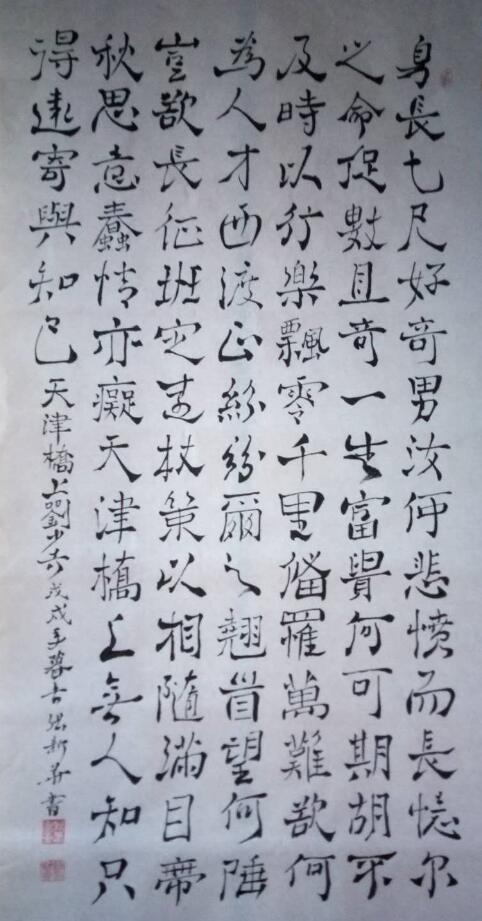 身長七尺好奇男汝何悲愤而長憶尔
之命促數且奇一生富貴何可期胡不
及時以行樂飄零千里偹罹萬難欲何
為人才西渡正紛紛爾之翹首望何陲
豈欲長征班定遠杖策以相隨滿目帝
秋思意蠢情亦癡天津橋上無人知只
得遠寄與知己 天津橋上劉少 戊戌年暮古 新 書